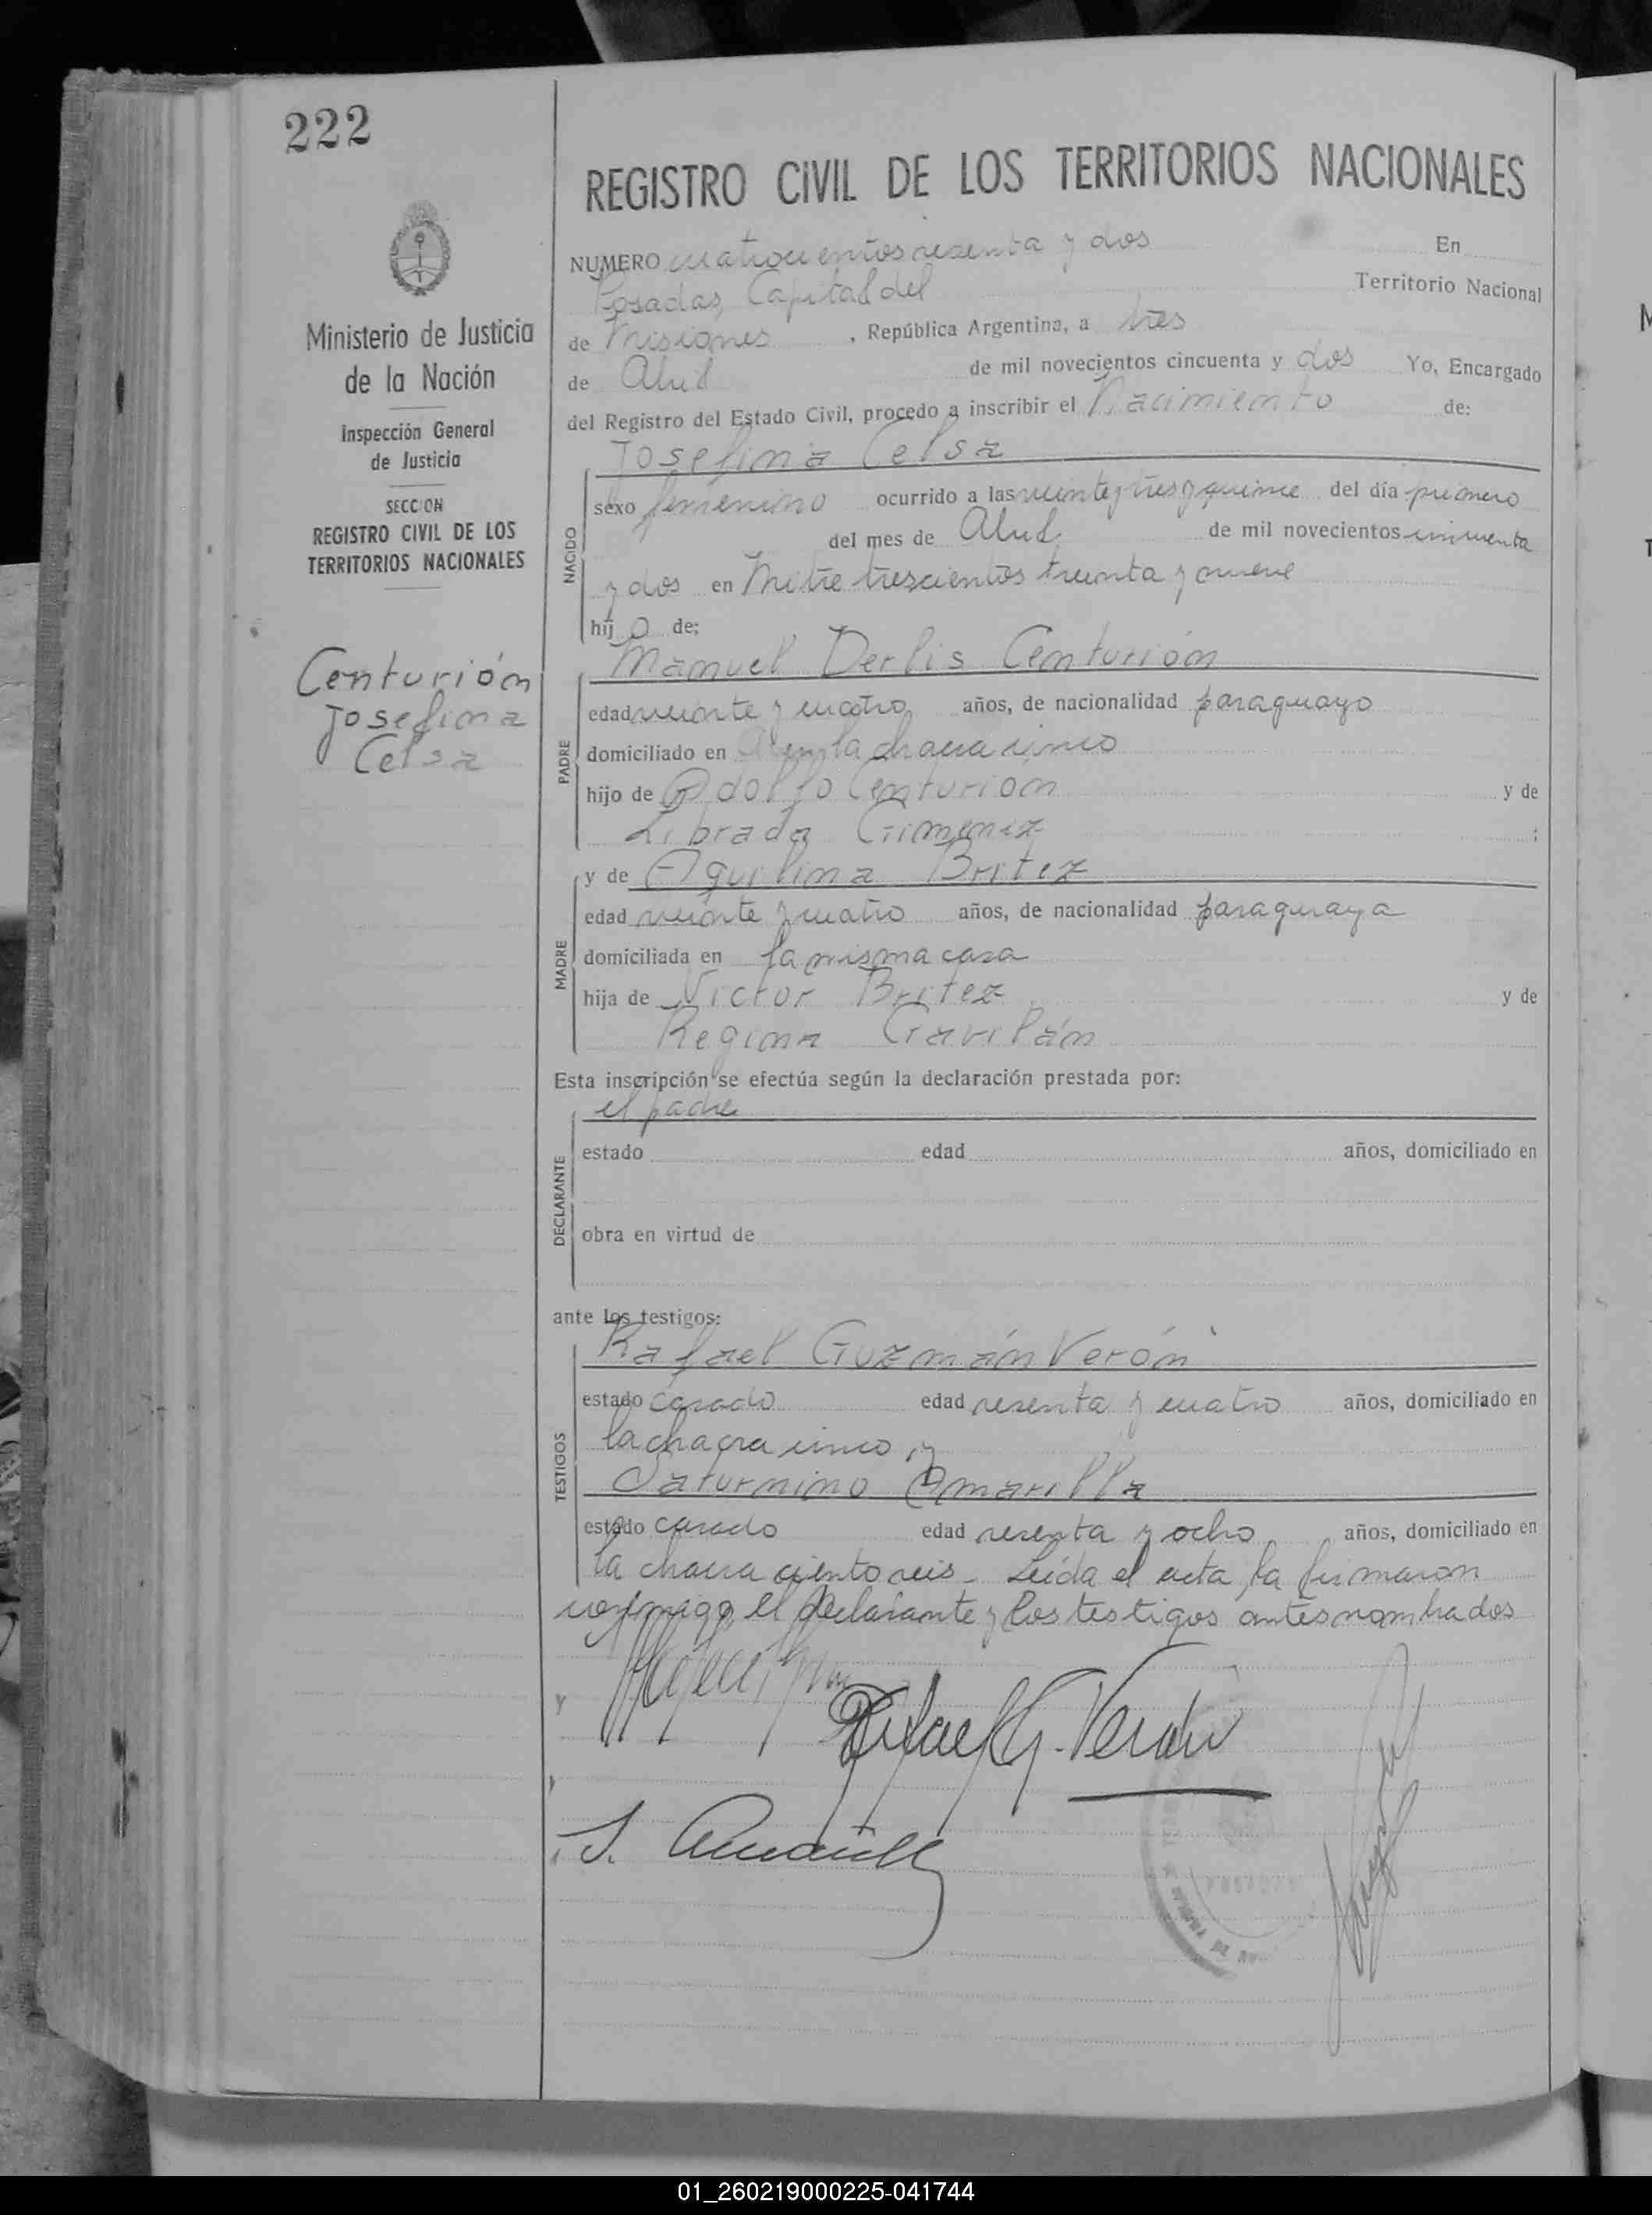 222
REGISTRO CIVIL DE LOS TERRITORIOS NACIONALES
Ministerio de Justicia
de la Nación
Inspección General
de Justicia
SECCION
REGISTRO CIVIL DE LOS
TERRITORIOS NACIONALES
Centurión
Josefina
Celsa
NUMERO cuatrocientos sesenta y dos En
Posadas, Capital del Territorio Nacional
de Misiones, República Argentina, a tres
de Abril de mil novecientos cincuenta y dos Yo, Encargado
del Registro del Estado Civil, procedo a inscribir el Nacimiento de:
Josefina Celsa
NACIDO
sexo femenino ocurrido a las veinte y tres y quince del día primero
del mes de Abril de mil novecientos cincuenta
y dos en Mitre trescientos treinta y nueve
hij a de;
Manuel Derlis Centurión
PADRE
edad veinte y cuatro años, de nacionalidad paraguayo
domiciliado en la chacra cinco
hijo de Adolfo Centurión y de
Librada Gimenez ;
y de Aquilina Britez
MADRE
edad veinte y cuatro años, de nacionalidad paraguaya
domiciliada en la misma casa
hija de Victor Britez y de
Regina Gavilán
Esta inscripción se efectúa según la declaración prestada por:
el padre
DECLARANTE
estado edad años, domiciliado en
obra en virtud de
ante los testigos:
Rafael Guzmán Verón
TESTIGOS
estado casado edad sesenta y cuatro años, domiciliado en
la chacra cinco, y
Saturnino Amarilla
estado casado edad sesenta y ocho años, domiciliado en
la chacra ciento seis_ Leída el acta, la firmaron
conmigo, el declarante y los testigos antes nombrados
Rafael G. Verón
S. Amarilla
01_260219000225-041744